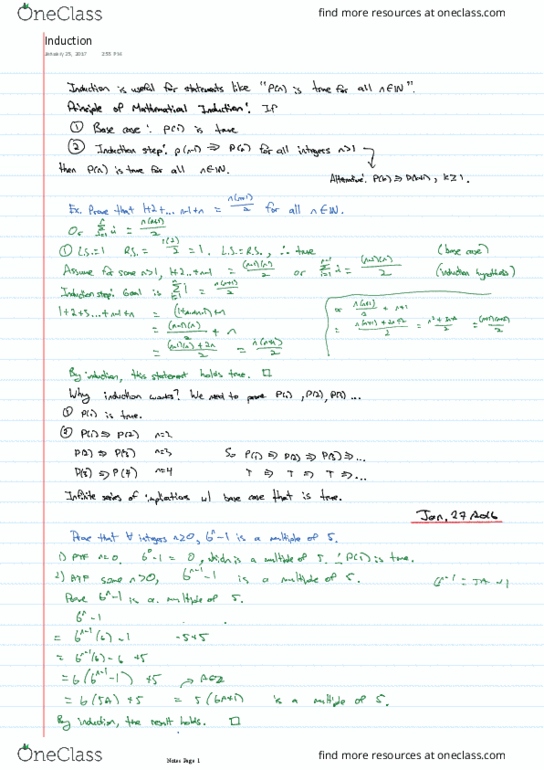 OneClass find more resources at oneclass.com
Induction
January 25, 2017 2:55 PM
Induction is useful for statements like "P(n) is true for all n∈ℕ".
Principle of Mathematical Induction: If
① Base case: P(1) is true
② Induction step: P(n-1) ⇒ P(n) for all integers n>1
then P(n) is true for all n∈ℕ.
Alternative: P(k) ⇒ P(k+1), k≥1.
Ex. Prove that 1+2+... n-1+n = n(n+1)/2 for all n∈ℕ.
Or Σ i = n(n+1)/2
① L.S.=1 R.S.= 1(2)/2 = 1. L.S.=R.S., ∴ true (base case)
Assume for some n>1, 1+2..+n-1 = (n-1)(n)/2 or Σ i = (n-1)(n)/2 (induction hypothesis)
Induction step: Goal is Σ i = n(n+1)/2
1+2+3...+n-1+n = (1+...+n-1)+n
= (n-1)(n)/2 + n
= (n-1)(n)+2n/2 = n(n+1)/2
or n(n+1)/2 + n+1
By induction, this statement holds true. □
Why induction works? We need to prove P(1), P(2), P(3)...
① P(1) is true.
② P(1) ⇒ P(2) n=2
P(2) ⇒ P(3) n=3 So P(1) ⇒ P(2) ⇒ P(3) ⇒...
P(3) ⇒ P(4) n=4 T ⇒ T ⇒ T ⇒...
Infinite series of implications w/ base case that is true.
Jan, 27
Prove that ∀ integers n≥0, 6ⁿ-1 is a multiple of 5.
1) n=0. 6⁰-1 = 0, which is a multiple of 5. ∴ P(1) is true.
2) some n>0, 6ⁿ⁻¹-1 is a multiple of 5.
Prove 6ⁿ-1 is a multiple of 5.
6ⁿ-1
= 6ⁿ⁻¹(6)-1 -5+5
= 6ⁿ⁻¹(6)-6+5
= 6(6ⁿ⁻¹-1)+5 → A∈ℤ
= 6(5A)+5 = 5(6A+1) is a multiple of 5.
By induction, the result holds. □
Notes Page 1
OneClass find more resources at oneclass.com